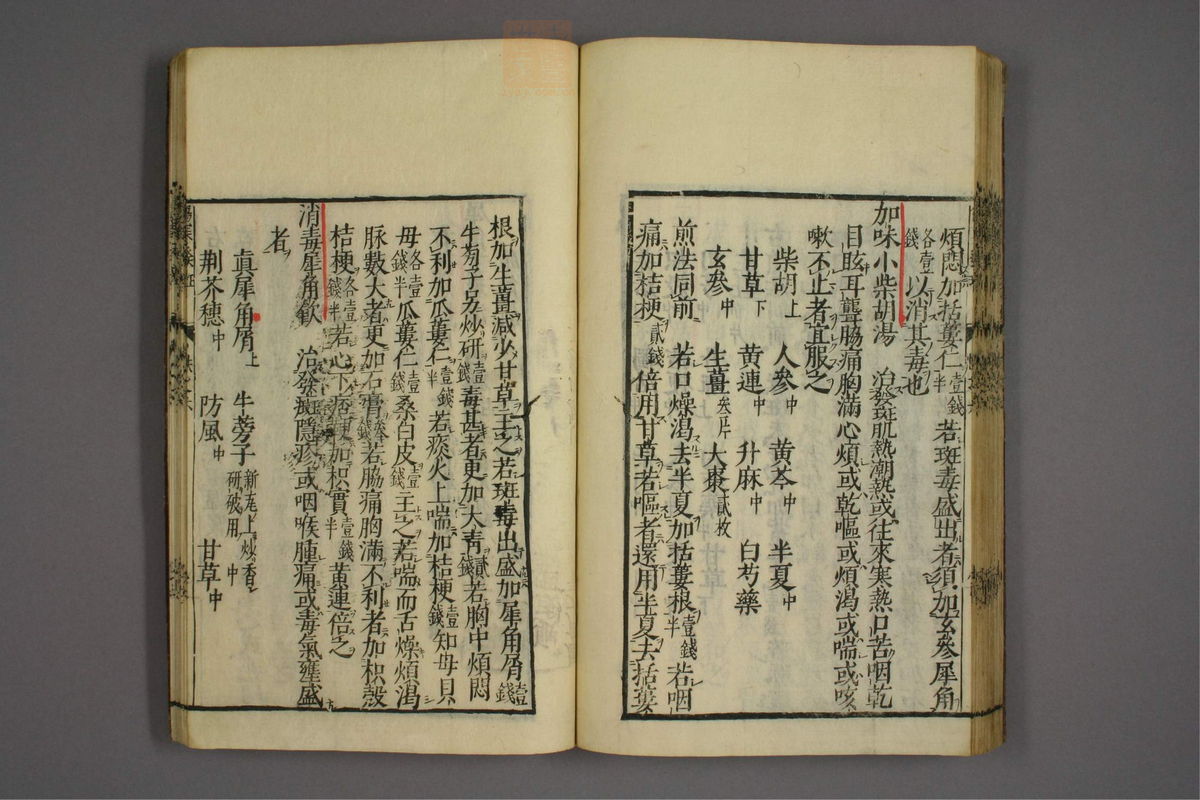 煩悶加括蔞仁壹錢半若斑毒盛出者須加玄參犀角
各壹錢以消其毒也
加味小柴胡湯 治發斑肌熱潮熱或往來寒熱口苦咽乾
目眩耳聾脇痛胸滿心煩或乾嘔或煩渴或喘或咳
嗽不止者宜服之
柴胡上 人參中 黃芩中 半夏中
甘草下 黃連中 升麻中 白芍藥
玄參中 生薑叁片 大棗貳枚
煎法同前 若口燥渴去半夏加括蔞根壹錢半若咽
痛加桔梗貳錢倍用甘草若嘔者還用半夏去括蔞
根加生薑減少甘草主之若斑毒出盛加犀角屑壹錢
牛蒡子另炒研壹錢毒甚者更加大青貳錢若胸中煩悶
不利加瓜蔞仁壹錢半若痰火上喘加桔梗壹錢知母貝
母各壹錢半瓜蔞仁壹錢桑白皮壹錢主之若喘而舌燥煩渴
脈數大者更加石膏叁錢若脇痛胸滿不利者加枳殼
桔梗各壹錢半若心下痞更加枳實壹錢半黃連倍之
消毒犀角飲 治發斑隱疹或咽喉腫痛或毒氣壅盛
者
真犀角屑上 牛蒡子新瓦上炒香研破用中
荆芥穗中 防風中 甘草中